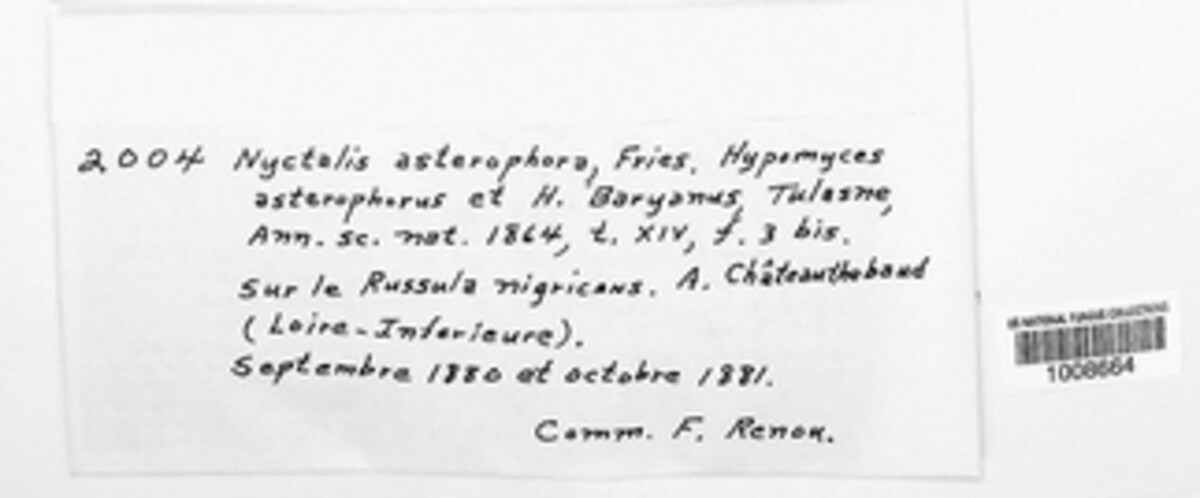 2004 Nyctalis asterophora, Fries. Hypomyces
asterophorus et H. Baryanus, Tulasne,
Ann. sc. nat. 1864, t. XIV, f. 3 bis.
Sur le Russula nigricans. A. Châteauthebaud
(Loire-Inferieure).
Septembre 1880 et octobre 1881.
Comm. F. Renou.
US NATIONAL FUNGUS COLLECTIONS
1008664